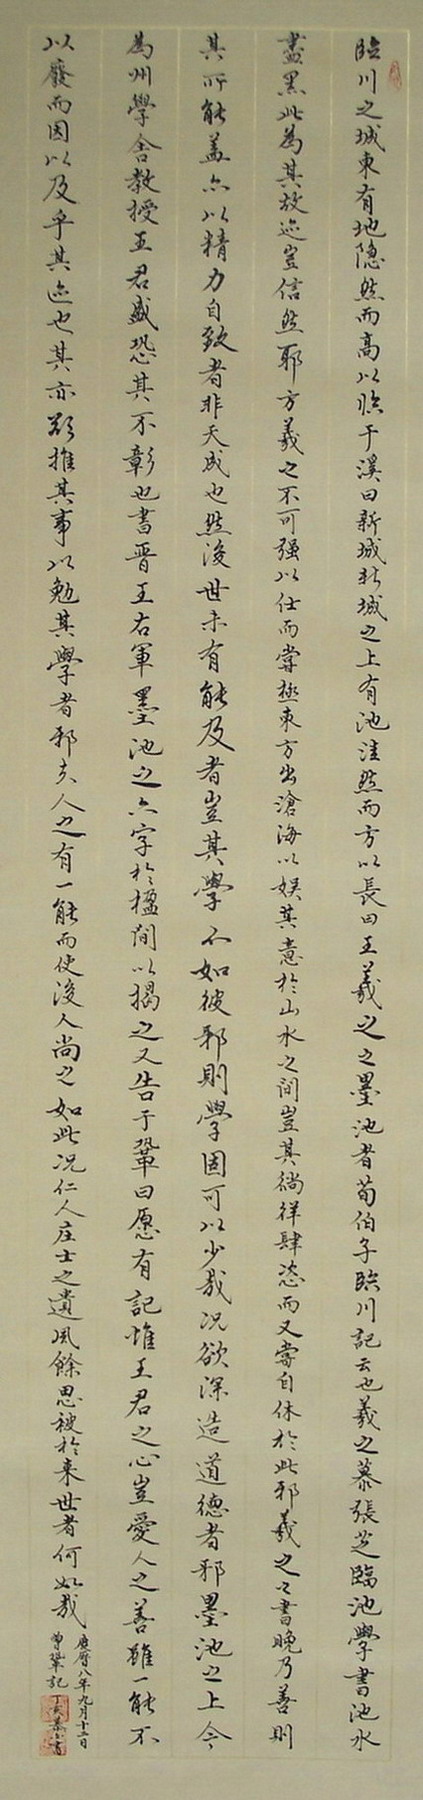 臨川之城東有地隱然而高以臨于溪曰新城新城之上有池洼然而方以長曰王羲之之墨池者荀伯子臨川記云也羲之慕張芝臨池學書池水
盡黑此為其故迹豈信然耶方羲之不可强以仕而嘗極東方出滄海以娱其意於山水之间豈其徜徉肆恣而又嘗自休於此邪羲之之書晚乃善則
其所能盖亦以精力自致者非天成也然後世未有能及者豈其學不如彼邪則學固可以少哉况欲深造道德者邪墨池之上今
為州學舍教授王君盛恐其不彰也書晋王右軍墨池之六字於楹间以揭之又告于鞏曰愿有記惟王君之心豈愛人之善雖一能不
以廢而因以及乎其迹也其亦欲推其事以勉其學者邪夫人之有一能而使後人尚之如此况仁人庄士之遺風餘思被於来世者何如哉
慶曆八年九月十二日
曾鞏記